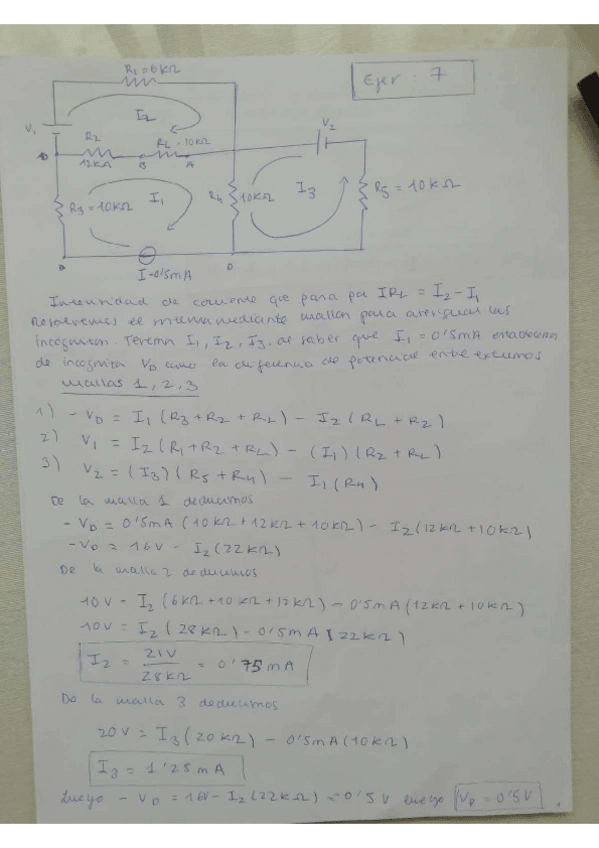 R1 = 6KΩ
Ejer : 7
I2
V1
R2
RL = 10KΩ
V2
12KΩ
B
A
R3 = 10KΩ
I1
R4
10KΩ
I3
R5 = 10KΩ
I=0'5mA
Intensidad de corriente que pasa por IRL = I2 - I1
Resolvemos el mediante mallas para averiguar las
incognitas. Tenemos I1, I2, I3. de saber que I1 = 0'5mA
de incognita VD como la diferencia de potencial entre extremos
mallas 1, 2, 3
1) - VD = I1 (R3 + R2 + RL) - I2 (RL + R2)
2) V1 = I2 (R1 + R2 + RL) - (I1) (R2 + RL)
3) V2 = (I3) (R5 + R4) - I1 (R4)
De la malla 1 deducimos
- VD = 0'5mA (10KΩ + 12KΩ + 10KΩ) - I2 (12KΩ + 10KΩ)
- VD = 16V - I2 (22KΩ)
De la malla 2 deducimos
10V = I2 (6KΩ + 10KΩ + 12KΩ) - 0'5mA (12KΩ + 10KΩ)
10V = I2 (28KΩ) - 0'5mA (22KΩ)
I2 = 21V / 28KΩ = 0'75mA
De la malla 3 deducimos
20V = I3 (20KΩ) - 0'5mA (10KΩ)
I3 = 1'25mA
Luego - VD = 16V - I2 (22KΩ) = -0'5V luego VD = 0'5V